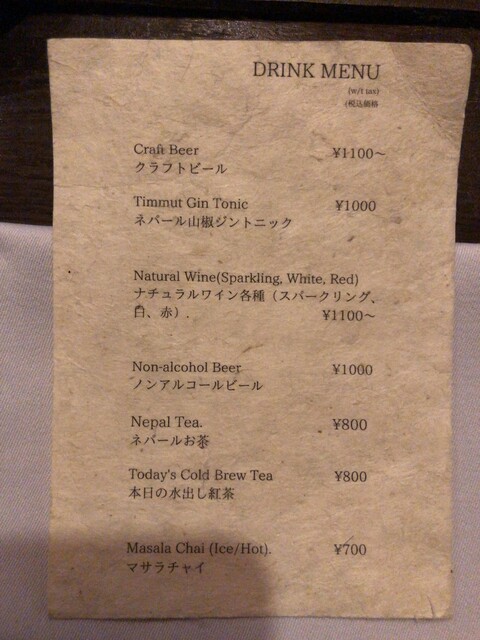 DRINK MENU
(w/t tax)
(税込価格
Craft Beer ¥1100～
クラフトビール
Timmut Gin Tonic ¥1000
ネパール山椒ジントニック
Natural Wine(Sparkling, White, Red)
ナチュラルワイン各種（スパークリング、
白、赤）. ¥1100～
Non-alcohol Beer ¥1000
ノンアルコールビール
Nepal Tea. ¥800
ネパールお茶
Today's Cold Brew Tea ¥800
本日の水出し紅茶
Masala Chai (Ice/Hot). ¥700
マサラチャイ